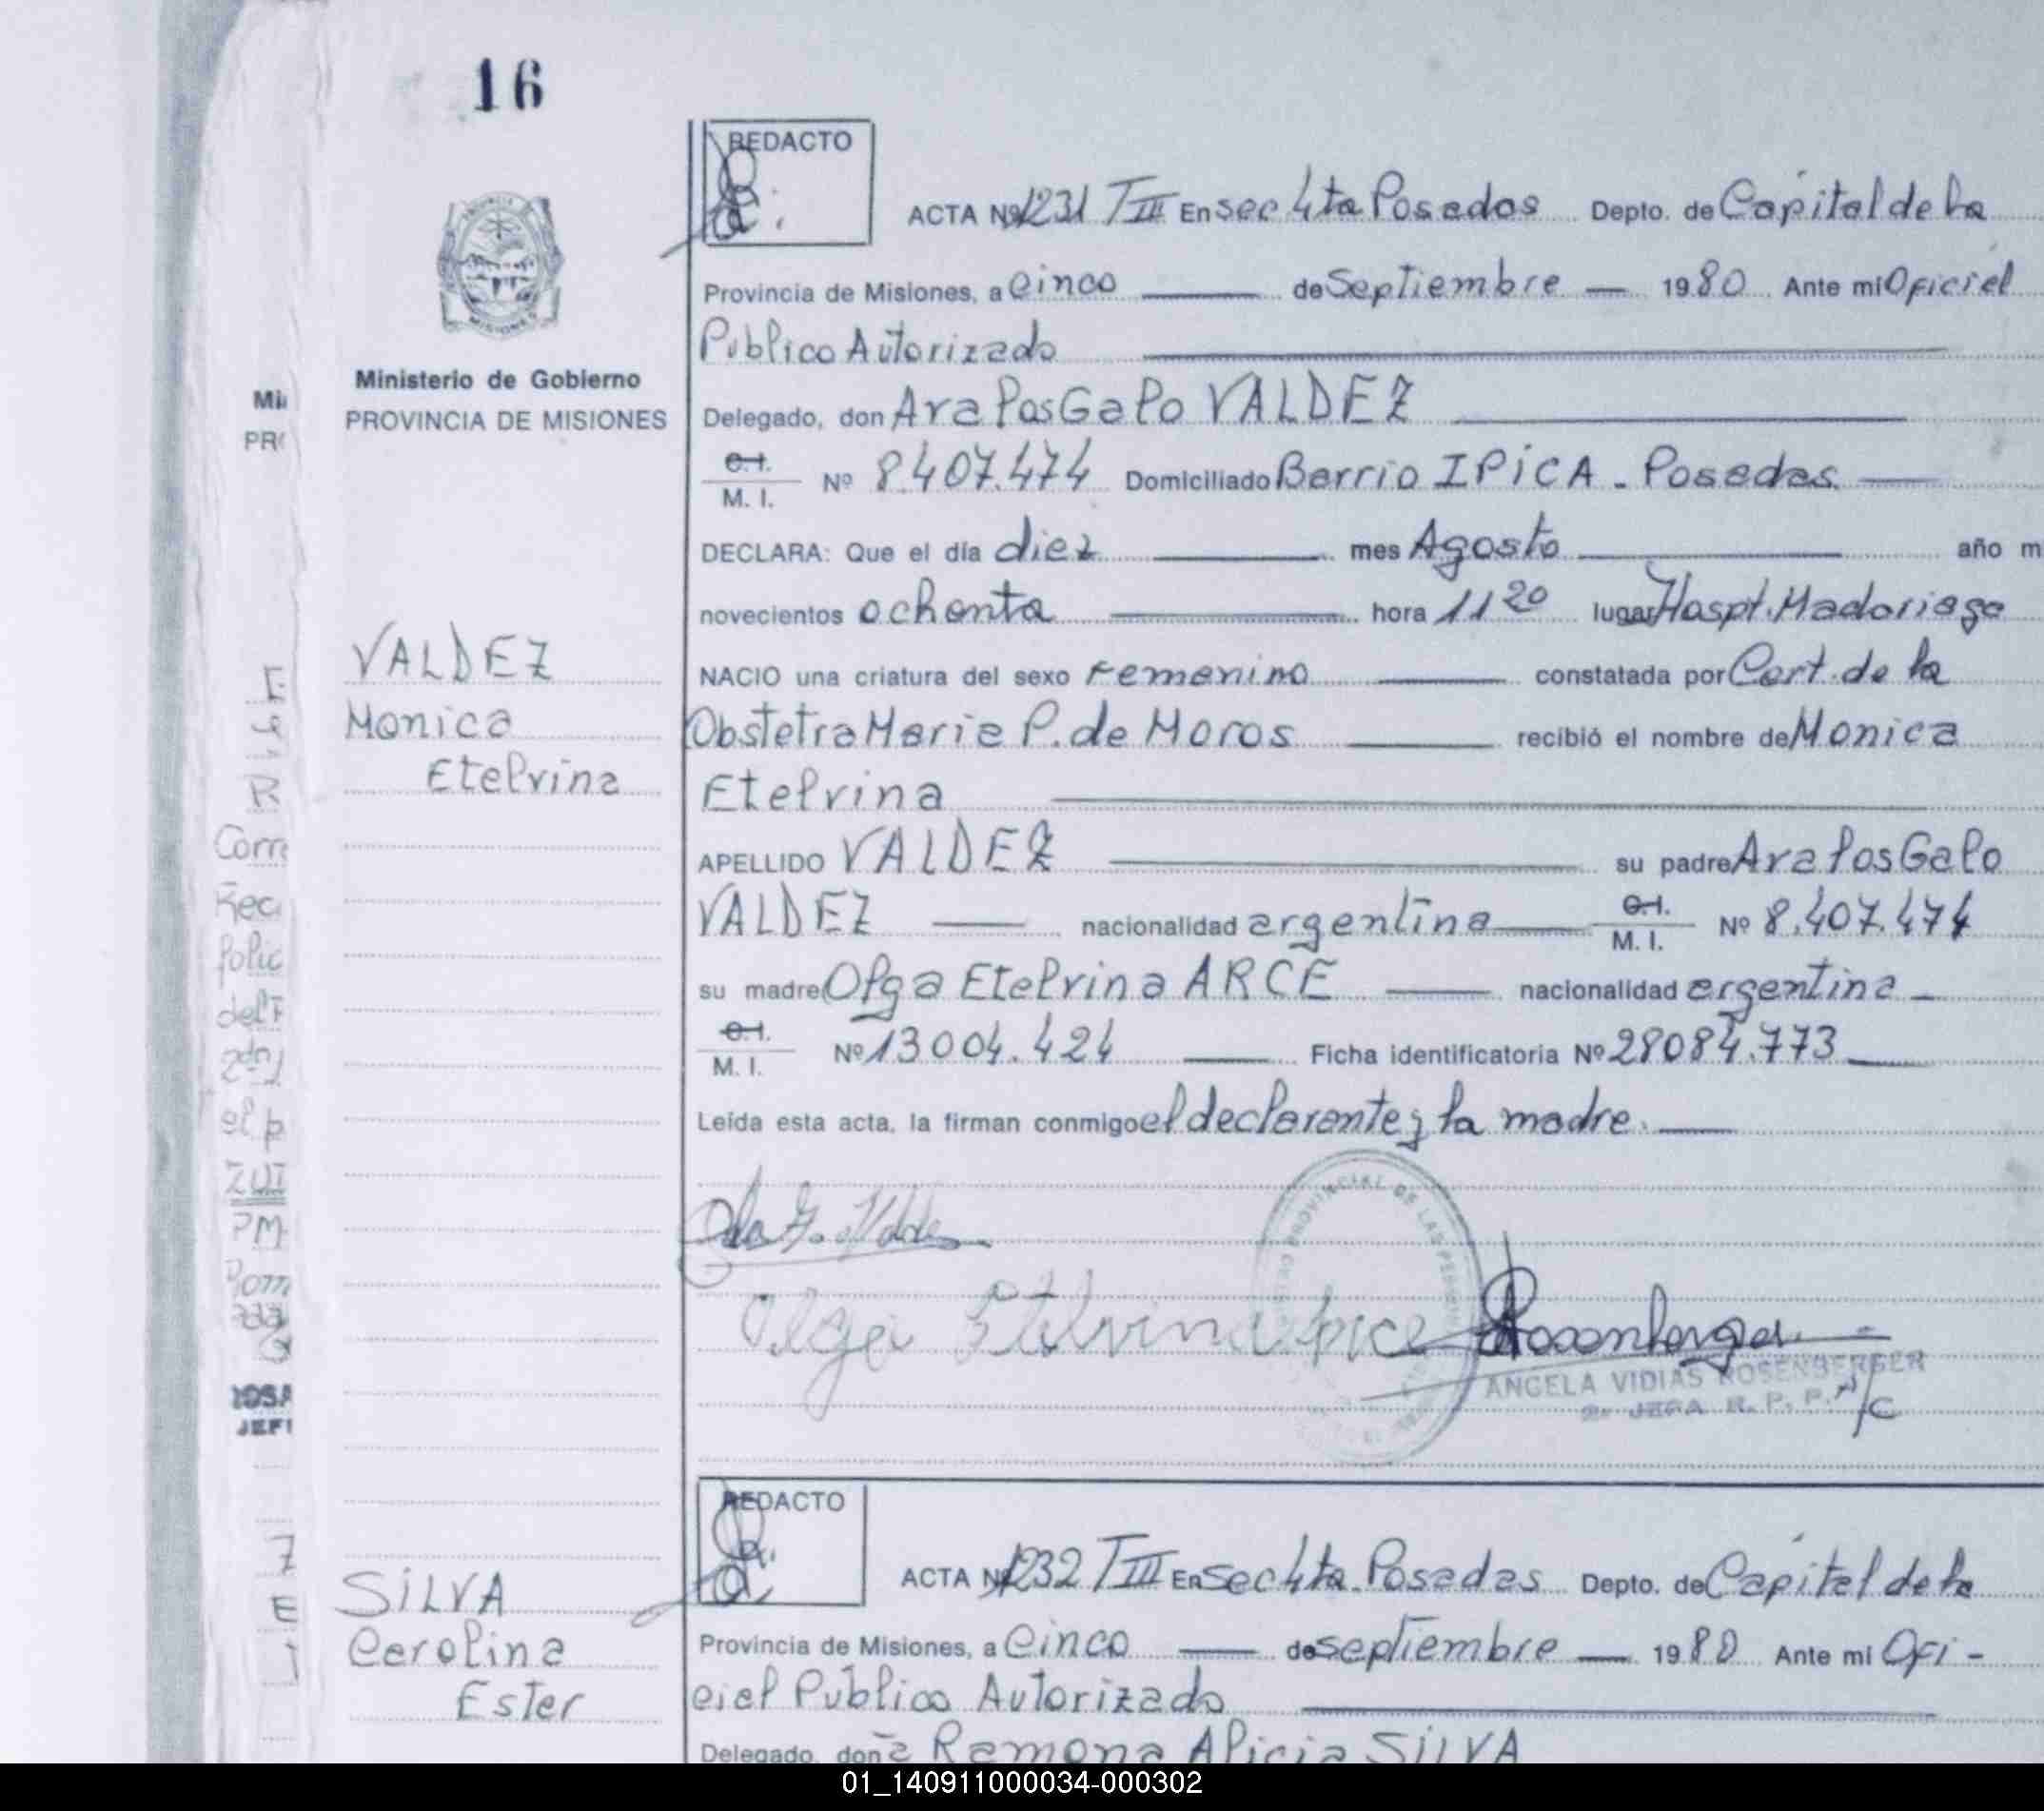 16
REDACTO
ACTA Nº 1231 TIII En sec 4ta Posadas Depto. de Capital de la
Provincia de Misiones, a cinco de Septiembre 1980 Ante mi Oficial
Publico Autorizado
Ministerio de Gobierno
PROVINCIA DE MISIONES
Delegado, don Ara Los Galo VALDEZ
C.I.
M. I. Nº 8.407.474 Domiciliado Barrio IPiCA - Posadas
DECLARA: Que el día diez mes Agosto año m
novecientos ochenta hora 11 20 lugar Hospt. Madariaga
VALDEZ
Monica
Etelvina
NACIO una criatura del sexo Femenino constatada por Cert. de la
Obstetra Maria P. de Moros recibió el nombre de Monica
Etelvina
APELLIDO VALDEZ su padre Ara Los Galo
VALDEZ nacionalidad argentina C.I. M. I. Nº 8.407.474
su madre Olga Etelvina ARCE nacionalidad argentina
C.I.
M. I. Nº 13004.424 Ficha identificatoria Nº 28084.773
Leída esta acta, la firman conmigo el declarante y la madre.
Olga Etelvina Arce
ANGELA VIDIAS ROSENBERGER
2a JEFA R. P. P. A/C
REDACTO
ACTA Nº 1232 TIII En Sec 4ta. Posadas Depto. de Capital de la
SiLVA
Carolina
Ester
Provincia de Misiones, a Cinco de septiembre 1980 Ante mi Ofi-
cial Público Autorizado
Delegado, don a Ramona Alicia SiLVA
01_140911000034-000302